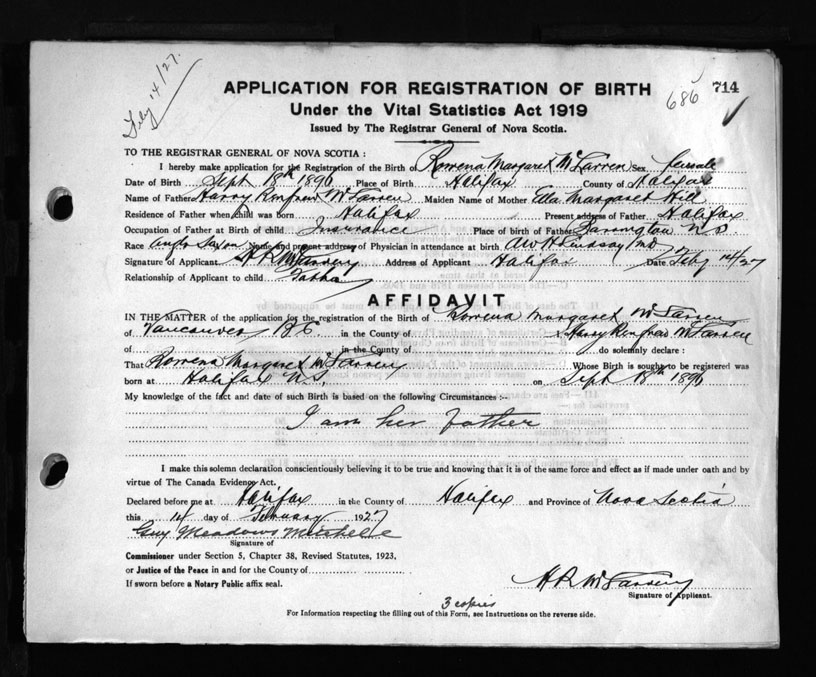 Feby 14/27.
APPLICATION FOR REGISTRATION OF BIRTH
686 714
Under the Vital Statistics Act 1919
Issued by The Registrar General of Nova Scotia.
TO THE REGISTRAR GENERAL OF NOVA SCOTIA :
I hereby make application for the Registration of the Birth of Rowena Margaret McLarren Sex female
Date of Birth Sept 18th 1896 Place of Birth Halifax County of Halifax
Name of Father Harry Renfrew McLarren Maiden Name of Mother Ella Margaret Hill
Residence of Father when child was born Halifax Present address of Father Halifax
Occupation of Father at Birth of child Insurance Place of birth of Father N.S.
Race Anglo Saxon Name and present address of Physician in attendance at birth A W H Lindsay MD
Signature of Applicant H R McLarren Address of Applicant Halifax Date Feby 14/27
Relationship of Applicant to child Father
AFFIDAVIT
IN THE MATTER of the application for the registration of the Birth of Rowena Margaret McLarren
of Vancouver B.C. in the County of I Harry Renfrew McLarren
of in the County of do solemnly declare :
That Rowena Margaret McLarren Whose Birth is sought to be registered was
born at Halifax N.S. on Sept 18th 1896
My knowledge of the fact and date of such Birth is based on the following Circumstances :-
I am her father
I make this solemn declaration conscientiously believing it to be true and knowing that it is of the same force and effect as if made under oath and by
virtue of The Canada Evidence Act.
Declared before me at Halifax in the County of Halifax and Province of Nova Scotia
this 14 day of February 1927
Guy Meadows
Signature of
Commissioner under Section 5, Chapter 38, Revised Statutes, 1923,
or Justice of the Peace in and for the County of
If sworn before a Notary Public affix seal.
H R McLarren
Signature of Applicant.
3 copies
For Information respecting the filling out of this Form, see Instructions on the reverse side.